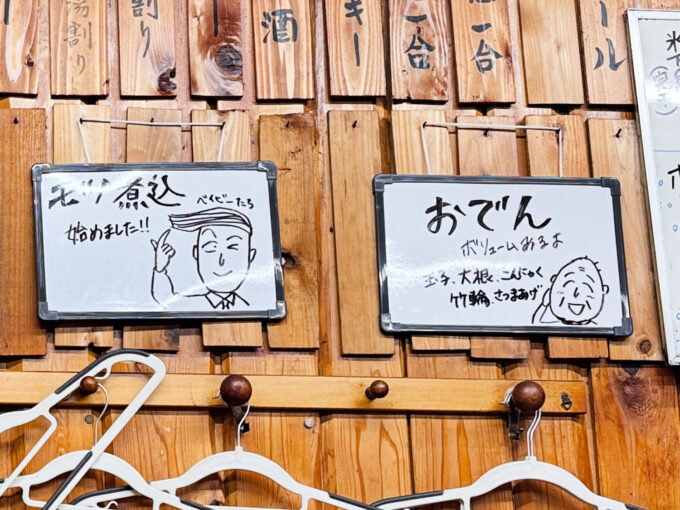 湯割り
割り
酒
キー
一合
一合
ール
モツ煮込
ベイビーたち
始めました!!
おでん
ボリュームあるよ
玉子、大根、こんにゃく
竹輪、さつまあげ